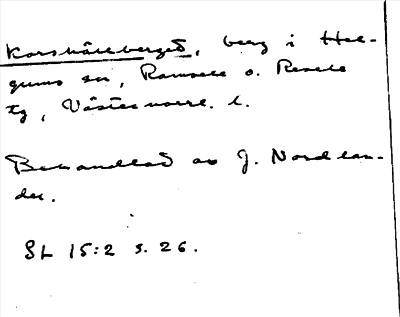 Korsnäsberget, berg i Hel-
gums sn, Ramsele o. Resele
tg, Västernorrl. l.
Behandlad av J. Nordlan-
der.
SL 15:2 s. 26.